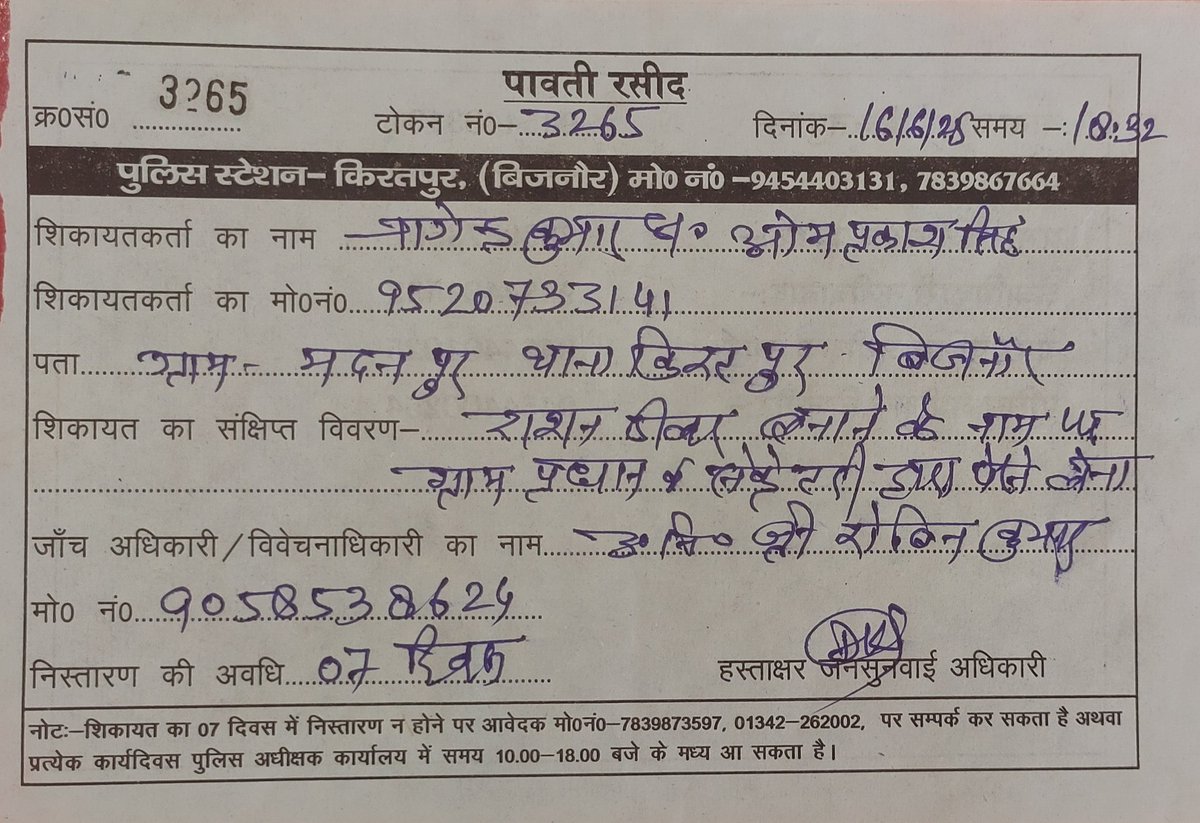 पावती रसीद
क्र०सं० 3265 टोकन नं०- 3265 दिनांक- 16/6/25 समय -: 18:32
पुलिस स्टेशन- किरतपुर, (बिजनौर) मो० नं० -9454403131, 7839867664
शिकायतकर्ता का नाम कुमार ओम प्रकाश सिंह
शिकायतकर्ता का मो०नं० 9520733141
पता ग्राम- मदनपुर थाना किरतपुर बिजनौर
शिकायत का संक्षिप्त विवरण- राशन डीलर बनाने के नाम पर
ग्राम प्रधान व सेक्रेटरी द्वारा पैसे लेना
जाँच अधिकारी/विवेचनाधिकारी का नाम उ०नि० श्री रोबिन कुमार
मो० नं० 9058538624
निस्तारण की अवधि 07 दिवस हस्ताक्षर जनसुनवाई अधिकारी
नोटः-शिकायत का 07 दिवस में निस्तारण न होने पर आवेदक मो०नं०-7839873597, 01342-262002, पर सम्पर्क कर सकता है अथवा
प्रत्येक कार्यदिवस पुलिस अधीक्षक कार्यालय में समय 10.00-18.00 बजे के मध्य आ सकता है।